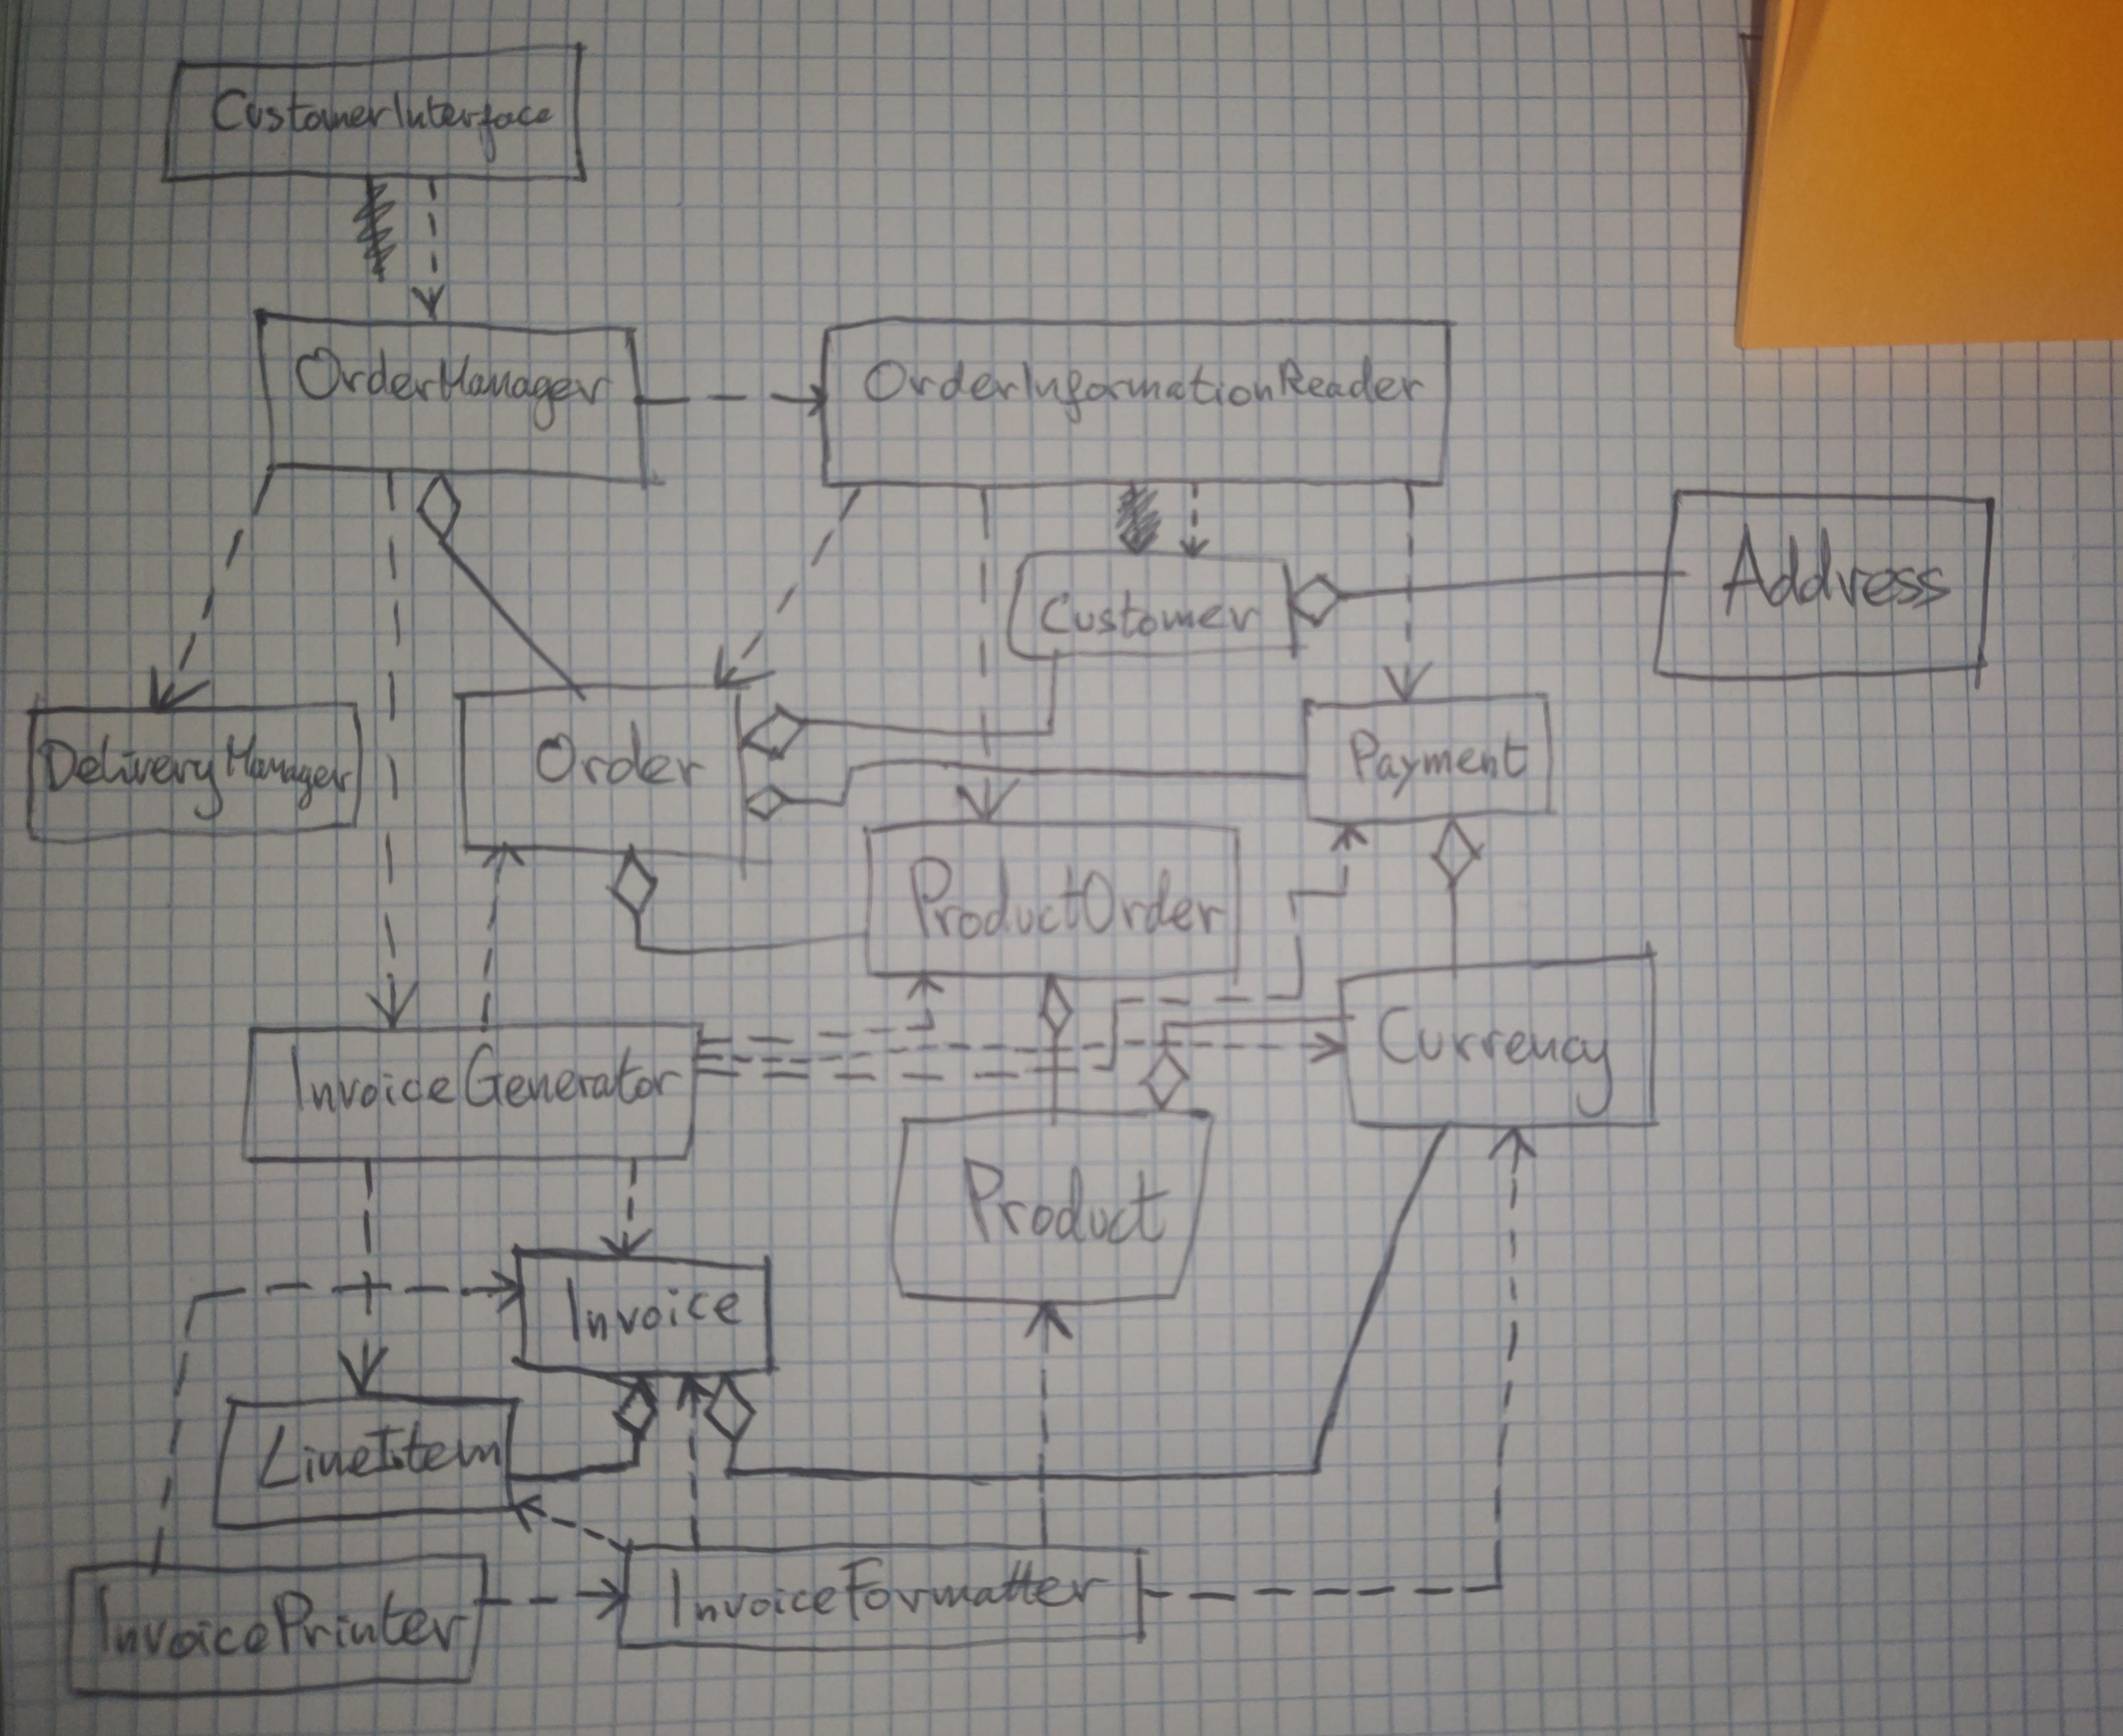 CustomerInterface
OrderManager
OrderInformationReader
Customer
Address
DeliveryManager
Order
Payment
ProductOrder
InvoiceGenerator
Currency
Product
Invoice
LineItem
InvoicePrinter
InvoiceFormatter